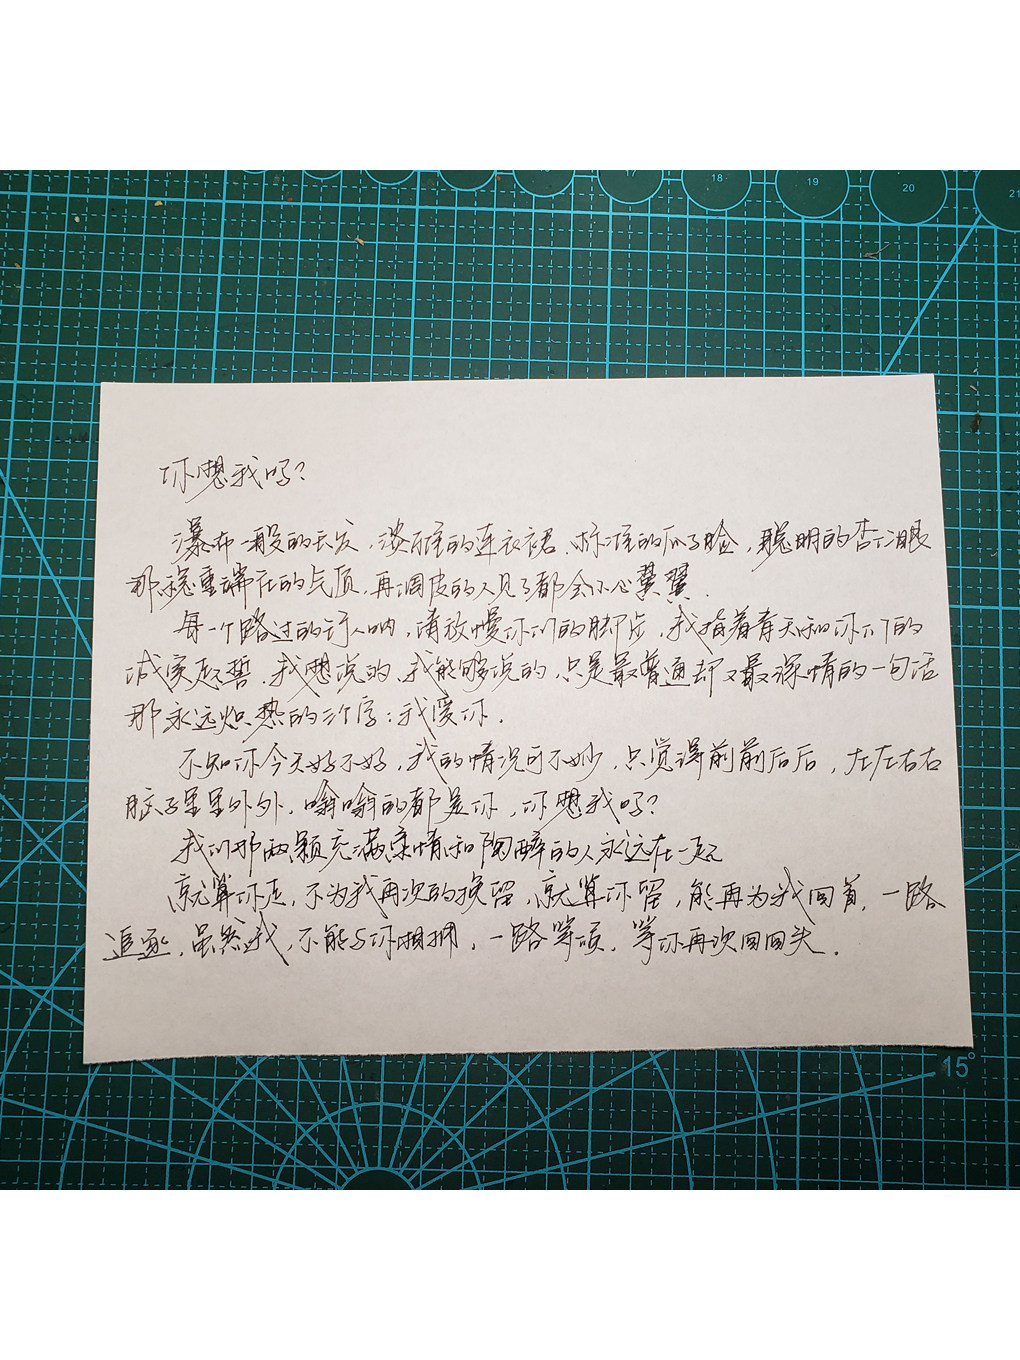 17 18 19 20 21
你想我吗?
瀑布一般的长发,淡雅的连衣裙,标准的瓜子脸,聪明的杏仁眼
那稳重端庄的气质,再调皮的人见了都会小心翼翼.
每一个路过的行人呐,请放慢你们的脚步,我指着青天和你们的
诚实起誓.我想说的,我能够说的,只是最普通却又最深情的一句话
那永远炽热的三个字:我爱你.
不知你今天好不好,我的情况可不妙,只觉得前前后后,左左右右
脑子里里外外,嗡嗡的都是你,你想我吗?
我们那两颗充满柔情和陶醉的人永远在一起
就算你走,不为我再次的挽留,就算你留,能再为我回首,一路
追逐,虽然我,不能与你相拥,一路等顾,等你再次回回头.
15°